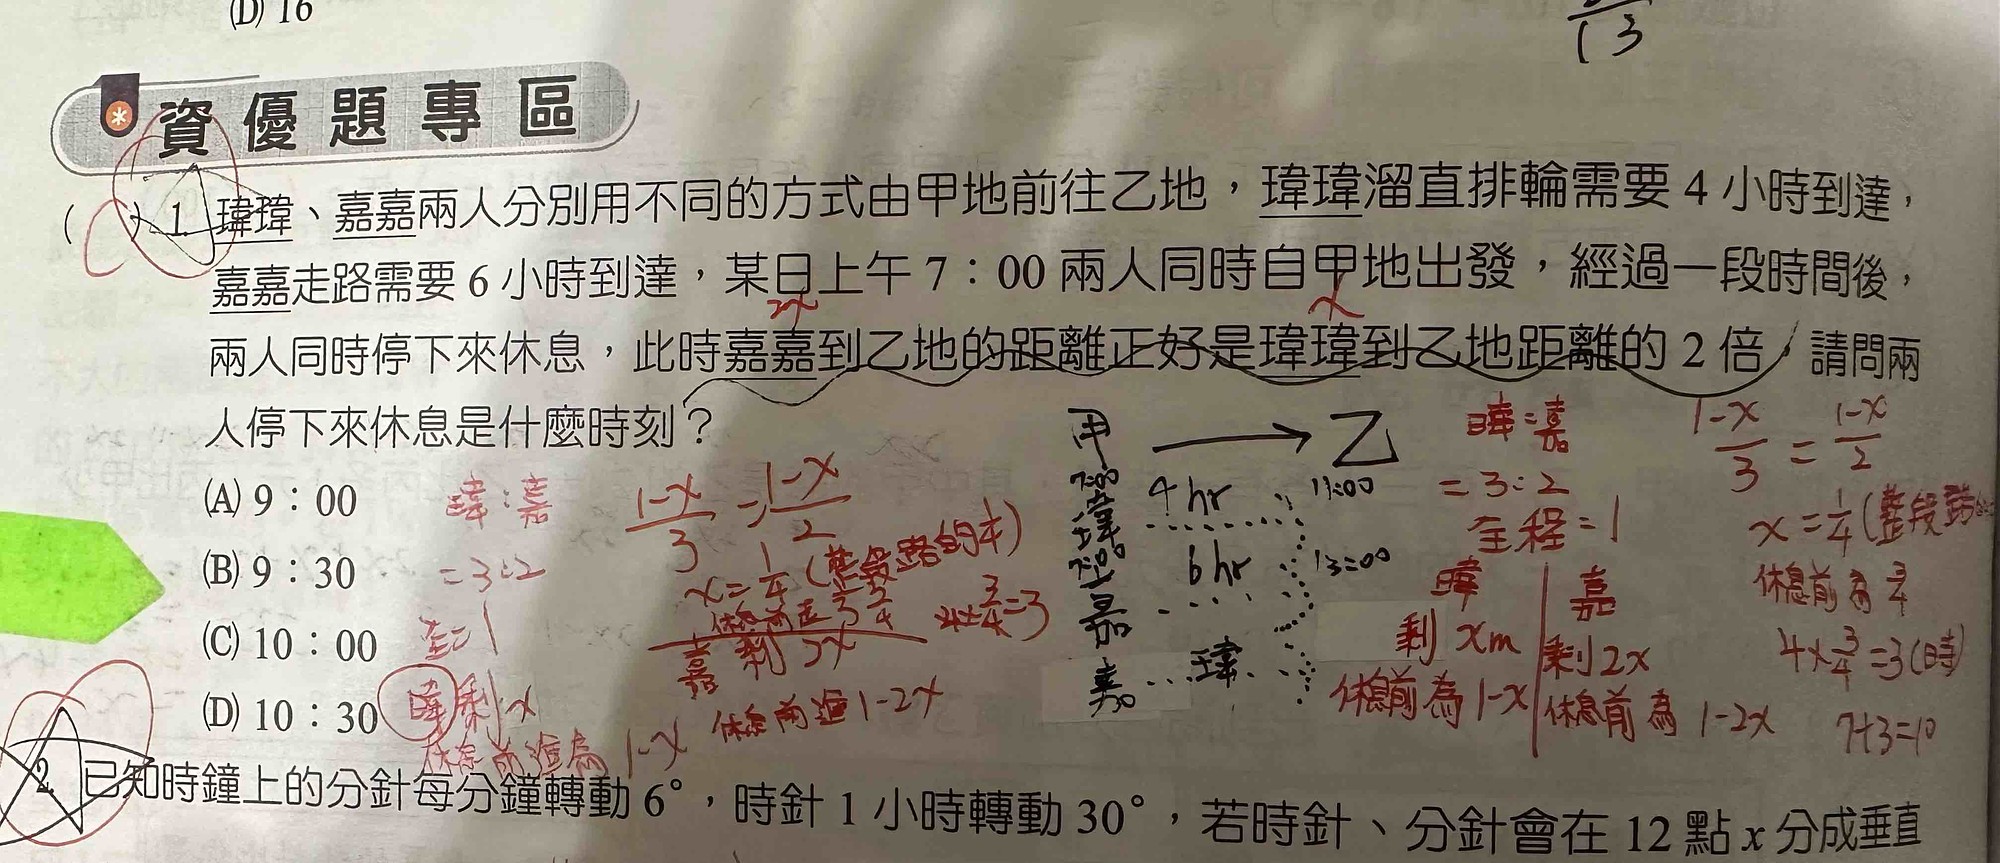 (D) 16
13
資優題專區
( C ) 1. 瑋瑋、嘉嘉兩人分別用不同的方式由甲地前往乙地，瑋瑋溜直排輪需要 4 小時到達，
嘉嘉走路需要 6 小時到達，某日上午 7：00 兩人同時自甲地出發，經過一段時間後，
2x x
兩人同時停下來休息，此時嘉嘉到乙地的距離正好是瑋瑋到乙地距離的 2 倍，請問兩
人停下來休息是什麼時刻？
(A) 9：00
(B) 9：30
(C) 10：00
(D) 10：30
瑋：嘉
=3:2
全=1
瑋剩x
休息前為 1-x
1-x/3 = 1-x/2
x=1/4 (整段路的1/4)
休息前走 3/4
4×3/4=3
嘉剩 2x
休息前 1-2x
甲 → 乙
7:00 瑋 4hr 11:00
7:00 嘉 6hr 13:00
嘉 瑋
瑋:嘉
=3:2
全程=1
瑋 嘉
剩 xm 剩2x
休息前為 1-x 休息前為 1-2x
1-x/3 = 1-x/2
x=1/4 (整段路
休息前為 3/4
4×3/4=3(時)
7+3=10
2. 已知時鐘上的分針每分鐘轉動 6°，時針 1 小時轉動 30°，若時針、分針會在 12 點 x 分成垂直